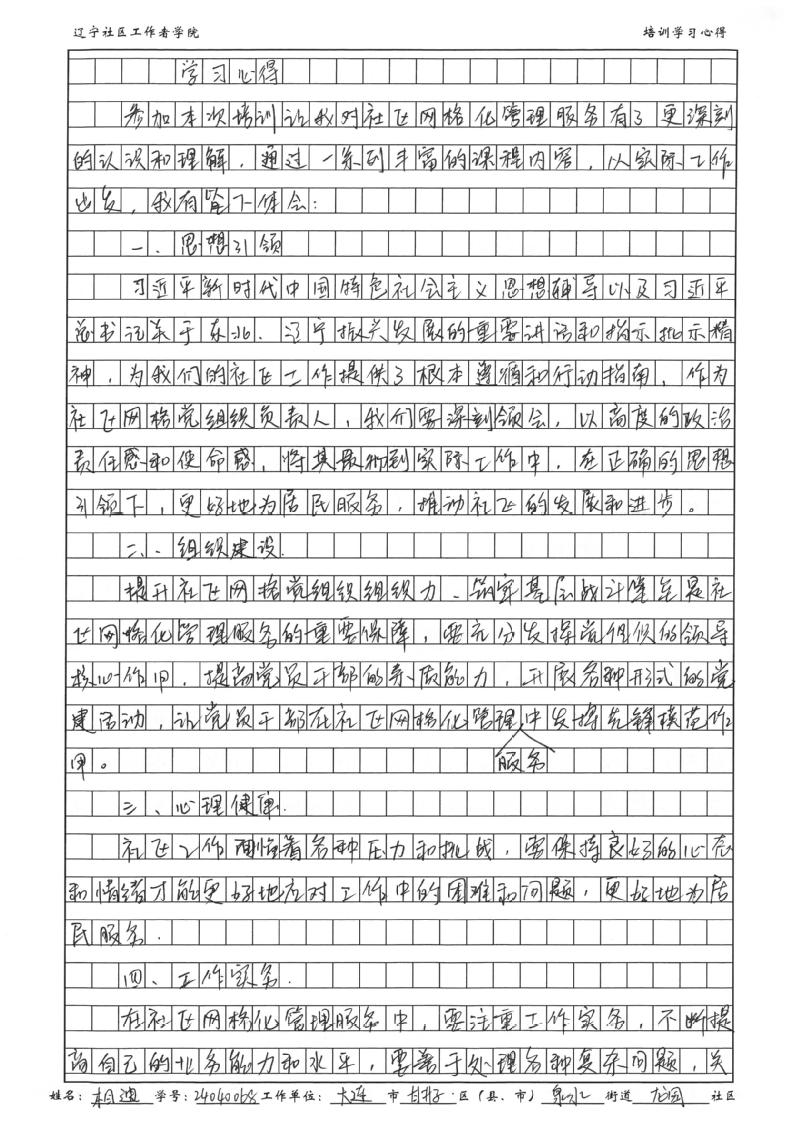 辽宁社区工作者学院 培训学习心得
学习心得
参加本次培训让我对社区网格化管理服务有了更深刻
的认识和理解，通过一系列丰富的课程内容，以实际工作
出发，我有以下体会：
一、思想引领
习近平新时代中国特色社会主义思想辅导以及习近平
总书记关于东北、辽宁振兴发展的重要讲话和指示批示精
神，为我们的社区工作提供了根本遵循和行动指南，作为
社区网格党组织负责人，我们要深刻领会，以高度的政治
责任感和使命感，将其贯彻到实际工作中，在正确的思想
引领下，更好地为居民服务，推动社区的发展和进步。
二、组织建设.
提升社区网格党组织组织力、筑牢基层战斗堡垒是社
区网格化管理服务的重要保障，要充分发挥党组织的领导
核心作用，提高党员干部的素质能力，开展各种形式的党
建活动，让党员干部在社区网格化管理服务中发挥先锋模范作
用。
三、心理健康.
社区工作面临着各种压力和挑战，要保持良好的心态
和情绪才能更好地应对工作中的困难和问题，更好地为居
民服务.
四、工作实务.
在社区网格化管理服务中，要注重工作实务，不断提
高自己的业务能力和水平，要善于处理各种复杂问题，关
姓名：相迪 学号：24040068 工作单位：大连 市 甘井子 区（县、市） 泉水 街道 龙园 社区